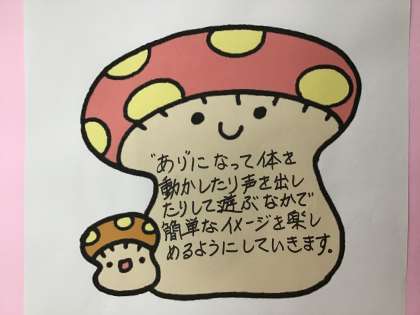 "あり"になって体を
動かしたり声を出し
たりして遊ぶなかで
簡単なイメージを楽し
めるようにしていきます。